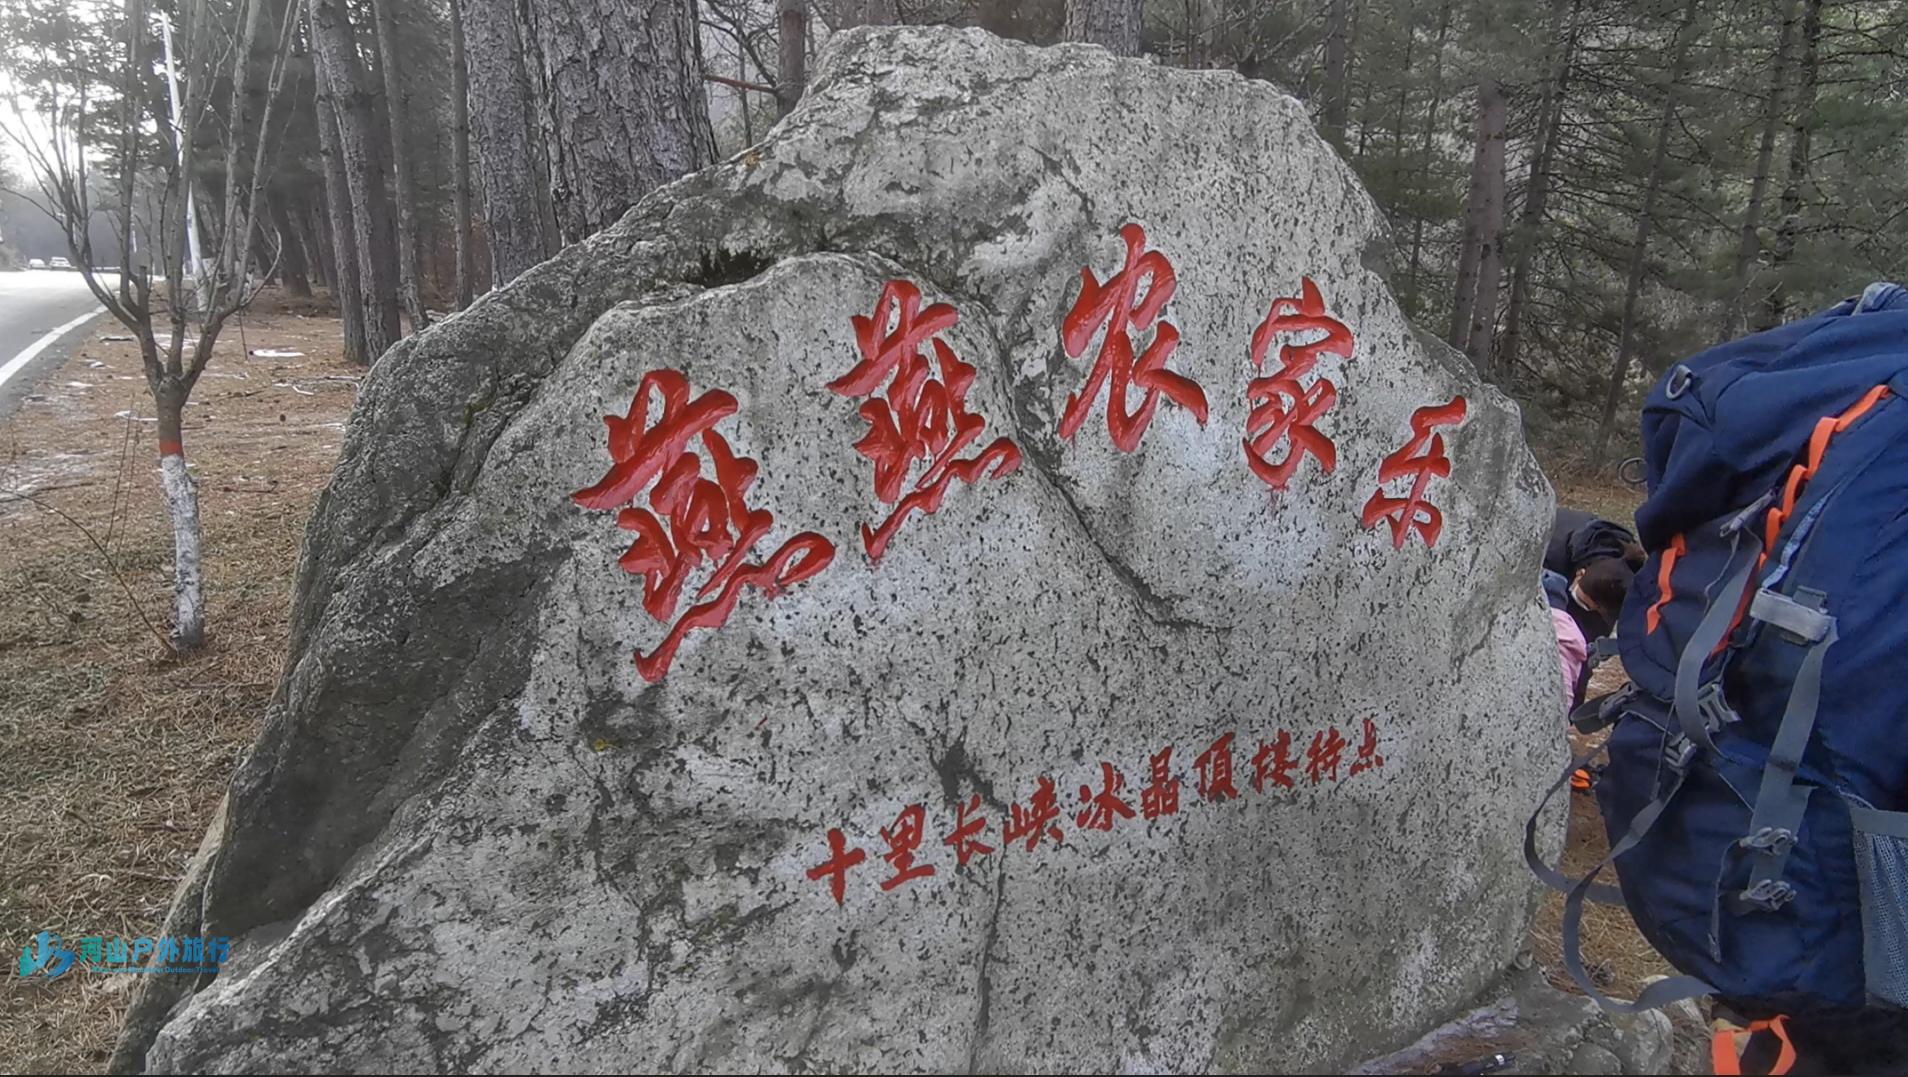 燕燕农家乐
十里长峡冰晶顶接待点
河山户外旅行